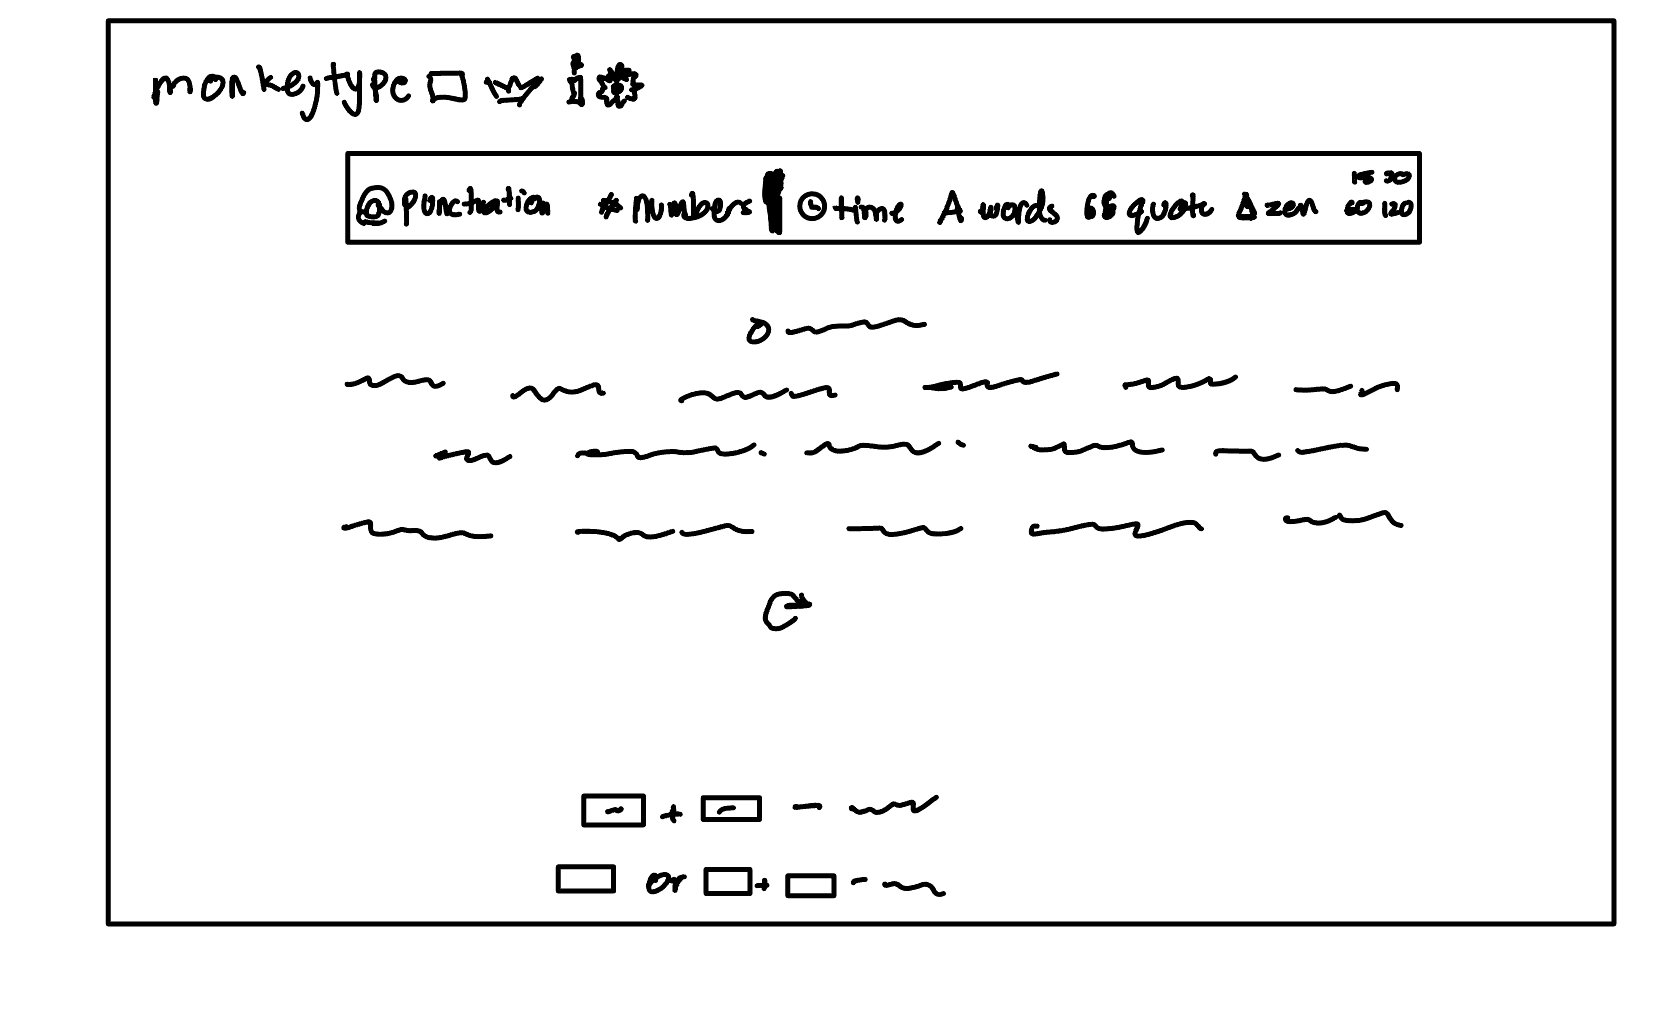 monkeytype
@ punctuation # numbers time A words 66 quote zen
15 30
60 120
+ -
or + -